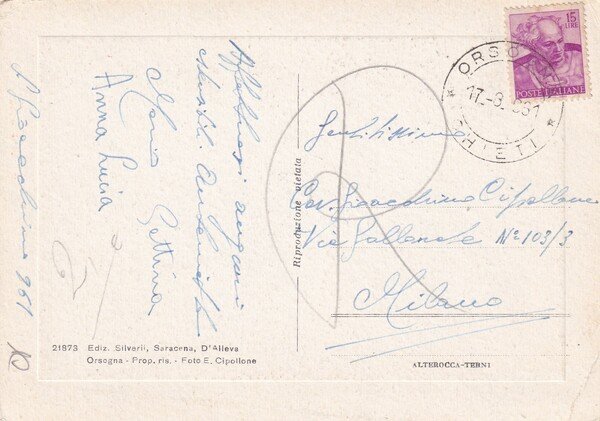 Affettuosi auguri
Maria Pettina
Anna Lucia
S. Gioacchino 961
21873 Ediz. Silverii, Saracena, D'Alleva
Orsogna - Prop. ris. - Foto E. Cipollone
Riproduzione vietata
15
LIRE
POSTE ITALIANE
ORSOGNA
17.-8.961
* CHIETI *
Gentilissimo
Cav. Gioacchino Cipollone
Via Gallarate N° 103/3
Milano
ALTEROCCA-TERNI